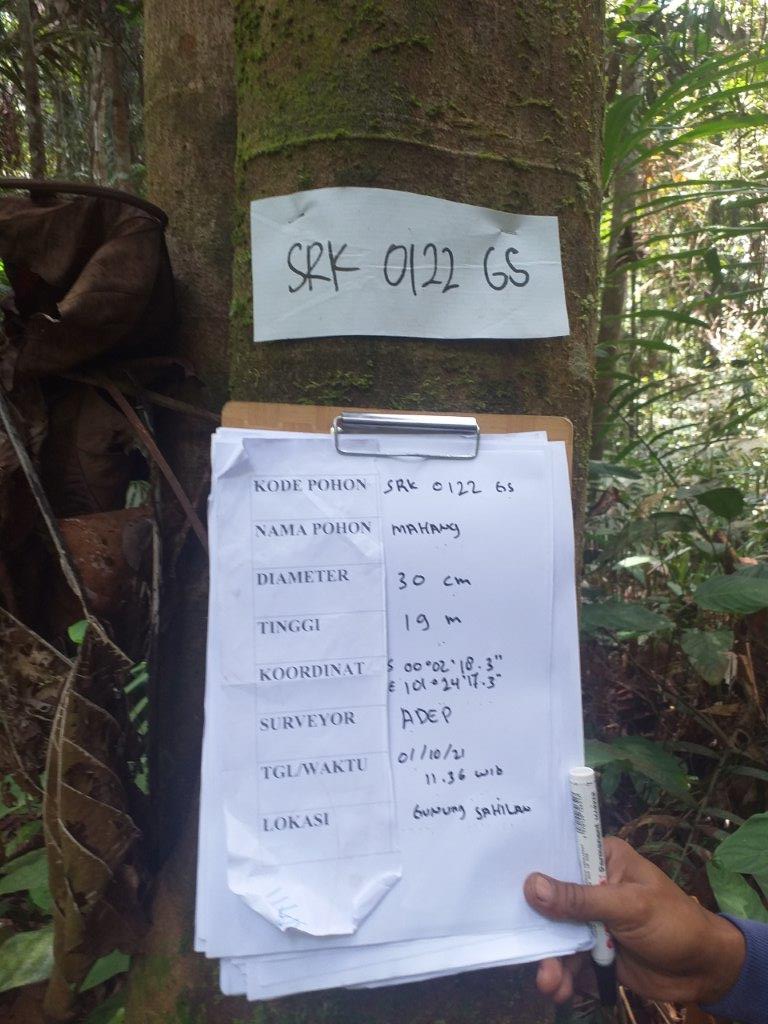 SRK 0122 GS
KODE POHON SRK 0122 GS
NAMA POHON MAHANG
DIAMETER 30 cm
TINGGI 19 m
KOORDINAT S 00°02'18.3"
E 101°24'17.3"
SURVEYOR ADEP
TGL/WAKTU 01/10/21
11.36 WIB
LOKASI GUNUNG SAHILAN